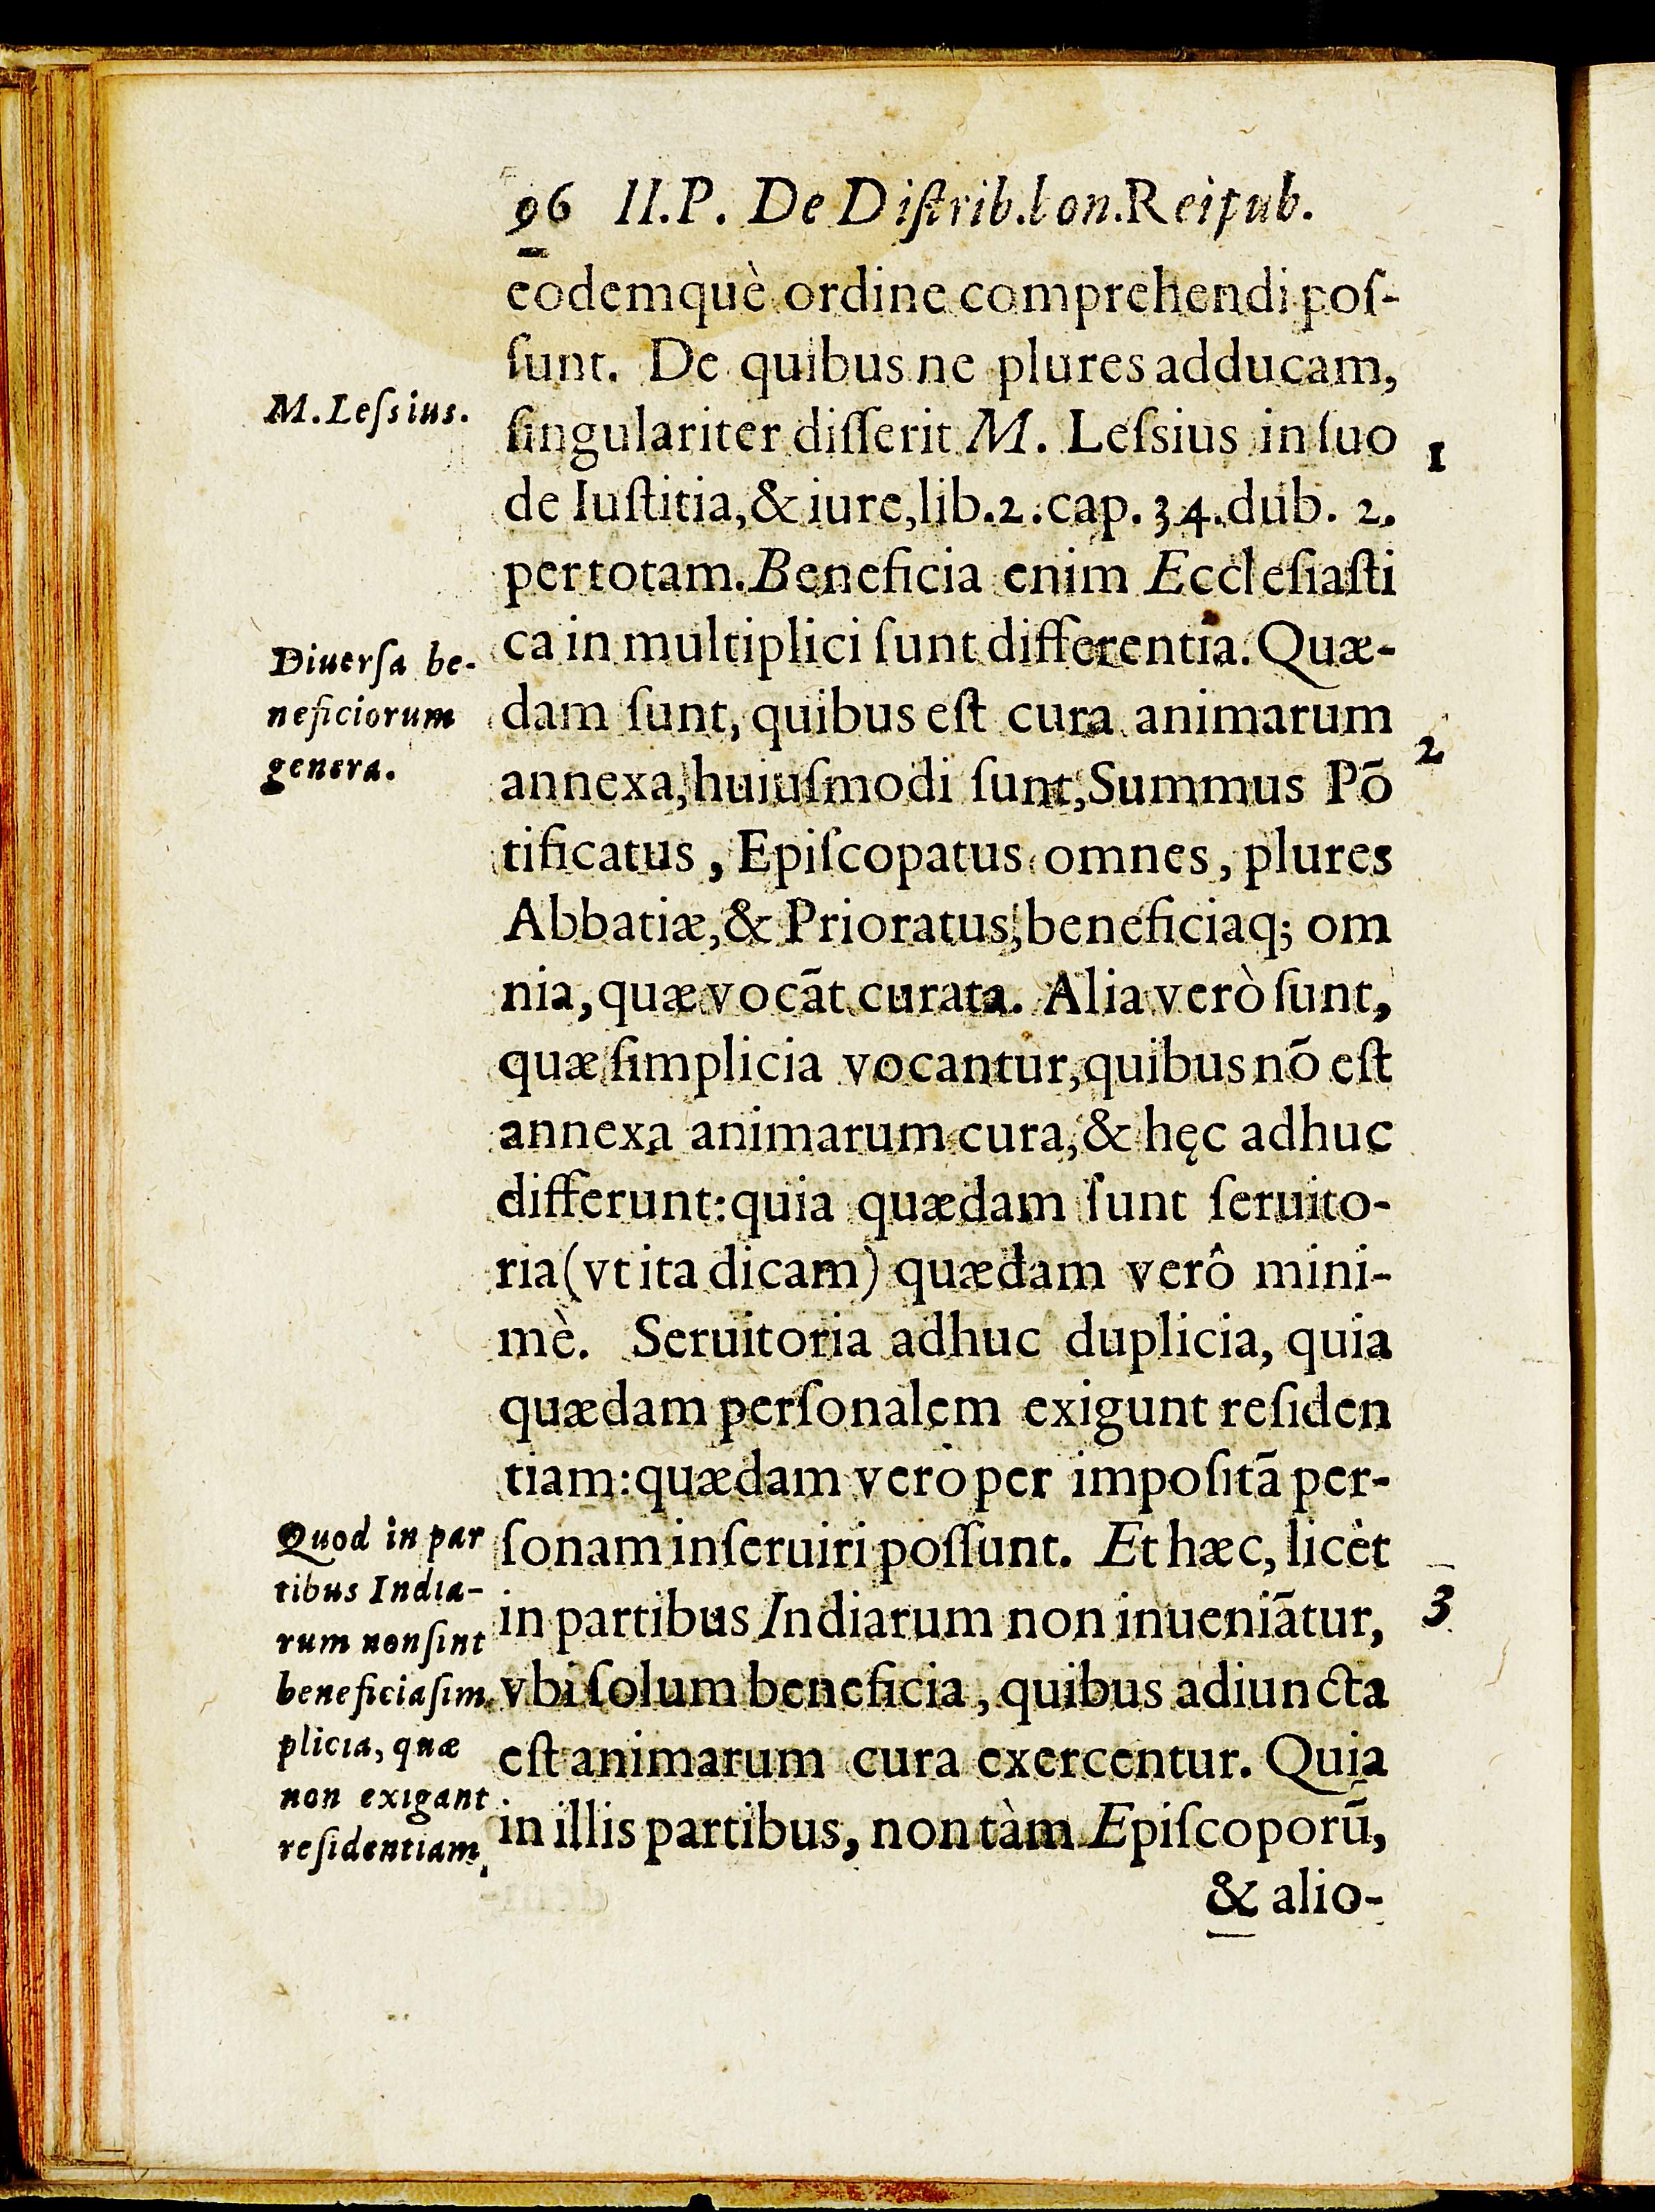 96 II.P. De Diſtrib.bon.Reipub.
eodemquè ordine comprehendi poſ-
ſunt. De quibus ne plures adducam,
M. Leſsius.
ſingulariter diſſerit M. Leſsius in ſuo
1
de Iuſtitia,& iure,lib.2.cap.34.dub. 2.
per totam.Beneficia enim Eccleſiaſti
ca in multiplici ſunt differentia. Quæ-
Diuerſa be-
neficiorum
genera.
dam ſunt, quibus eſt cura animarum
2
annexa, huiuſmodi ſunt, Summus Põ
tificatus, Epiſcopatus omnes, plures
Abbatiæ, & Prioratus, beneficiaq; om
nia, quæ vocãt curata. Alia verò ſunt,
quæ ſimplicia vocantur, quibus nõ eſt
annexa animarum cura, & hęc adhuc
differunt: quia quædam ſunt ſeruito-
ria (vt ita dicam) quædam verô mini-
mè. Seruitoria adhuc duplicia, quia
quædam perſonalem exigunt reſiden
tiam: quædam vero per impoſitã per-
ſonam inſeruiri poſſunt. Et hæc, licèt
in partibus Indiarum non inueniãtur,
3
vbi ſolum beneficia, quibus adiuncta
eſt animarum cura exercentur. Quia
in illis partibus, non tàm Epiſcoporũ,
Quod in par
tibus India-
rum non ſint
beneficia ſim
plicia, quæ
non exigant
reſidentiam.
& alio-